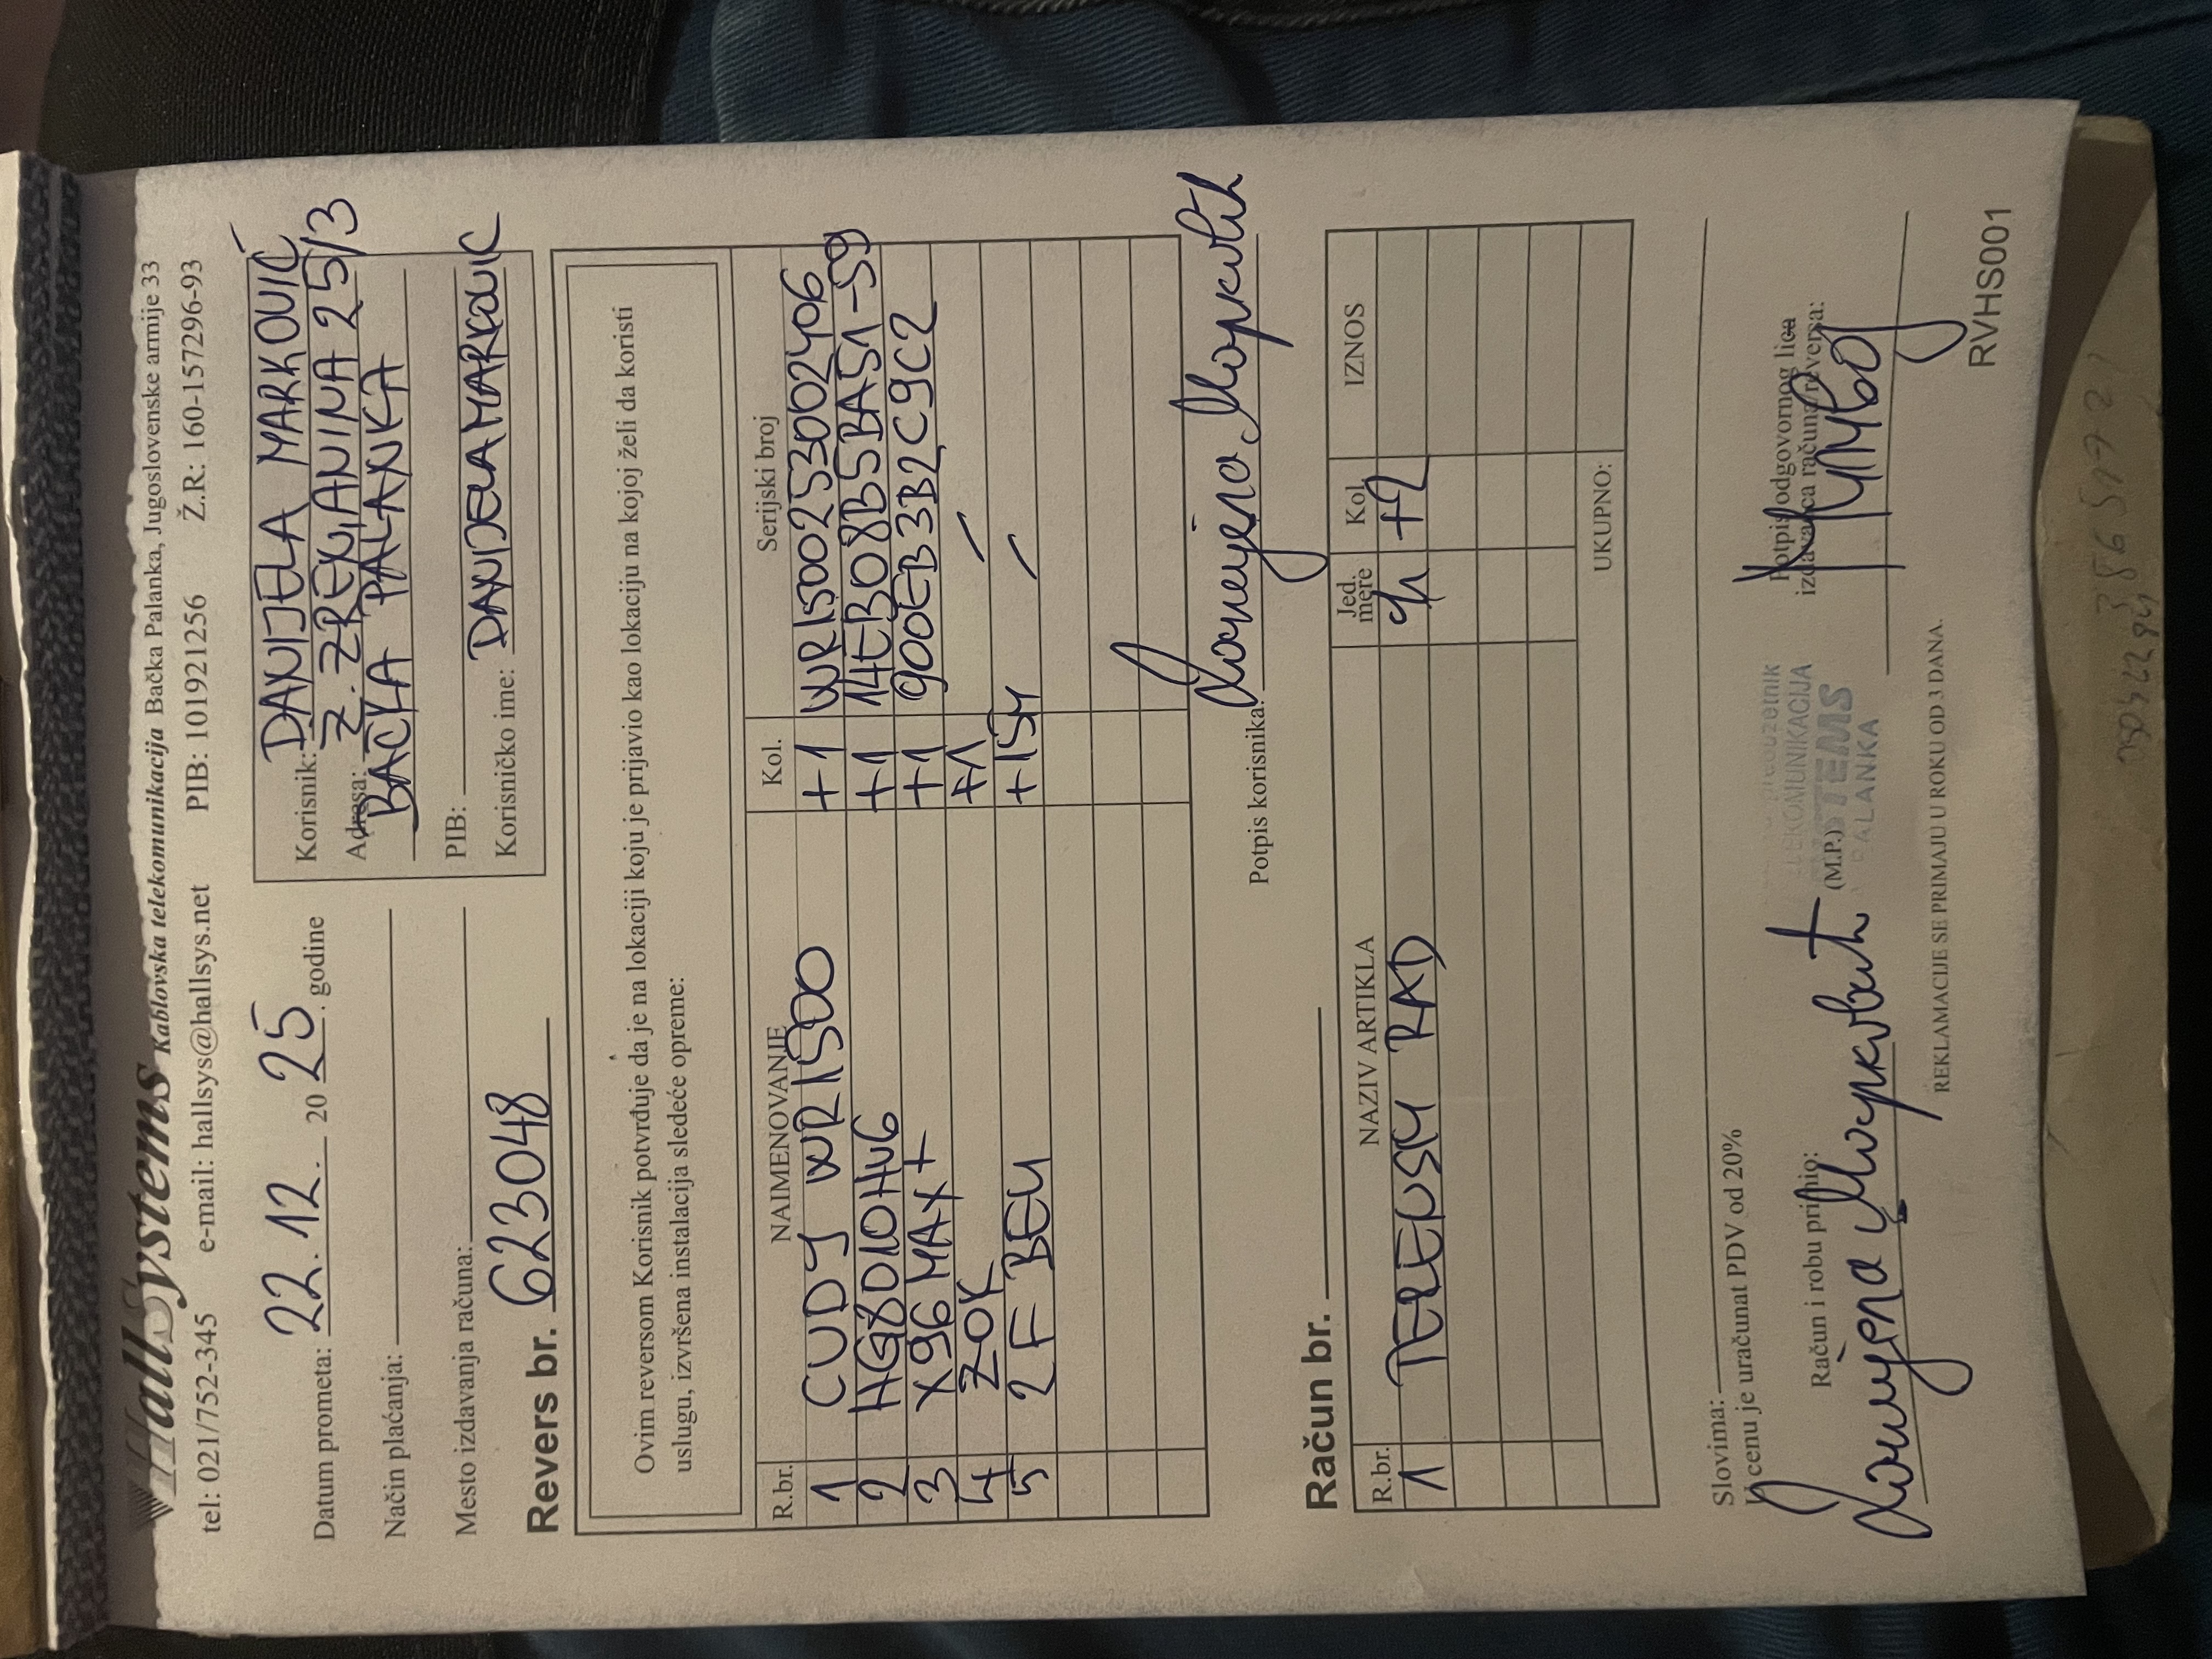 HallSystems Kablovska telekomunikacija Bačka Palanka, Jugoslovenske armije 33
tel: 021/752-345 e-mail: hallsys@hallsys.net PIB: 101921256 Ž.R: 160-157296-93
Datum prometa: 22.12. 20 25. godine
Način plaćanja:
Mesto izdavanja računa:
Korisnik: DANIJELA MARKOVIĆ
Adresa: Ž. ZRENJANINA 25/3
BAČKA PALANKA
PIB:
Korisničko ime: DANIJELAMARKOVIC
Revers br. 623048
Ovim reversom Korisnik potvrđuje da je na lokaciji koju je prijavio kao lokaciju na kojoj želi da koristi
uslugu, izvršena instalacija sledeće opreme:
R.br. NAIMENOVANJE Kol. Serijski broj
1 CUDY WR1500 +1 WR1500253002406
2 HG8010Hv6 +1 14EB08B5BA51-59
3 X96 MAX+ +1 900EB3B2C9C2
4 ZOK +1 /
5 2F BELI +15M /
Potpis korisnika: Данијела Марковић
Račun br.
R.br. NAZIV ARTIKLA Jed. mere Kol. IZNOS
1 TERENSKI RAD +2
UKUPNO:
Slovima:
U cenu je uračunat PDV od 20%
Račun i robu primio:
Данијела Марковић
(M.P.)
TELEKOMUNIKACIJA
PALANKA
Potpis odgovornog lica
izdavaoca računa/reversa:
REKLAMACIJE SE PRIMAJU U ROKU OD 3 DANA.
RVHS001